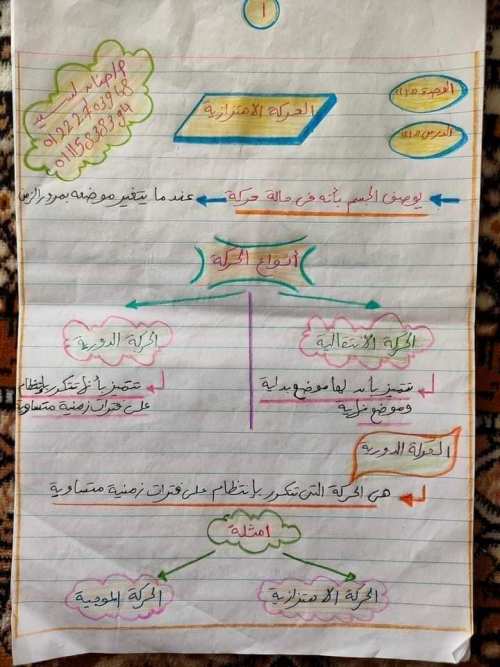 ١
الوحدة الأولى
الدرس الأول
الحركة الاهتزازية
01222703948
01158383394
يوصف الجسم بأنه فى حالة حركة
عندما يتغير موضعه بمرور الزمن
أنواع الحركة
الحركة الانتقالية
تتميز بأن لها موضع بداية
وموضع نهاية
الحركة الدورية
تتميز بأنها تتكرر بإنتظام
على فترات زمنية متساوية
الحركة الدورية
هى الحركة التى تتكرر بإنتظام على فترات زمنية متساوية
أمثلة
الحركة الاهتزازية
الحركة الموجية